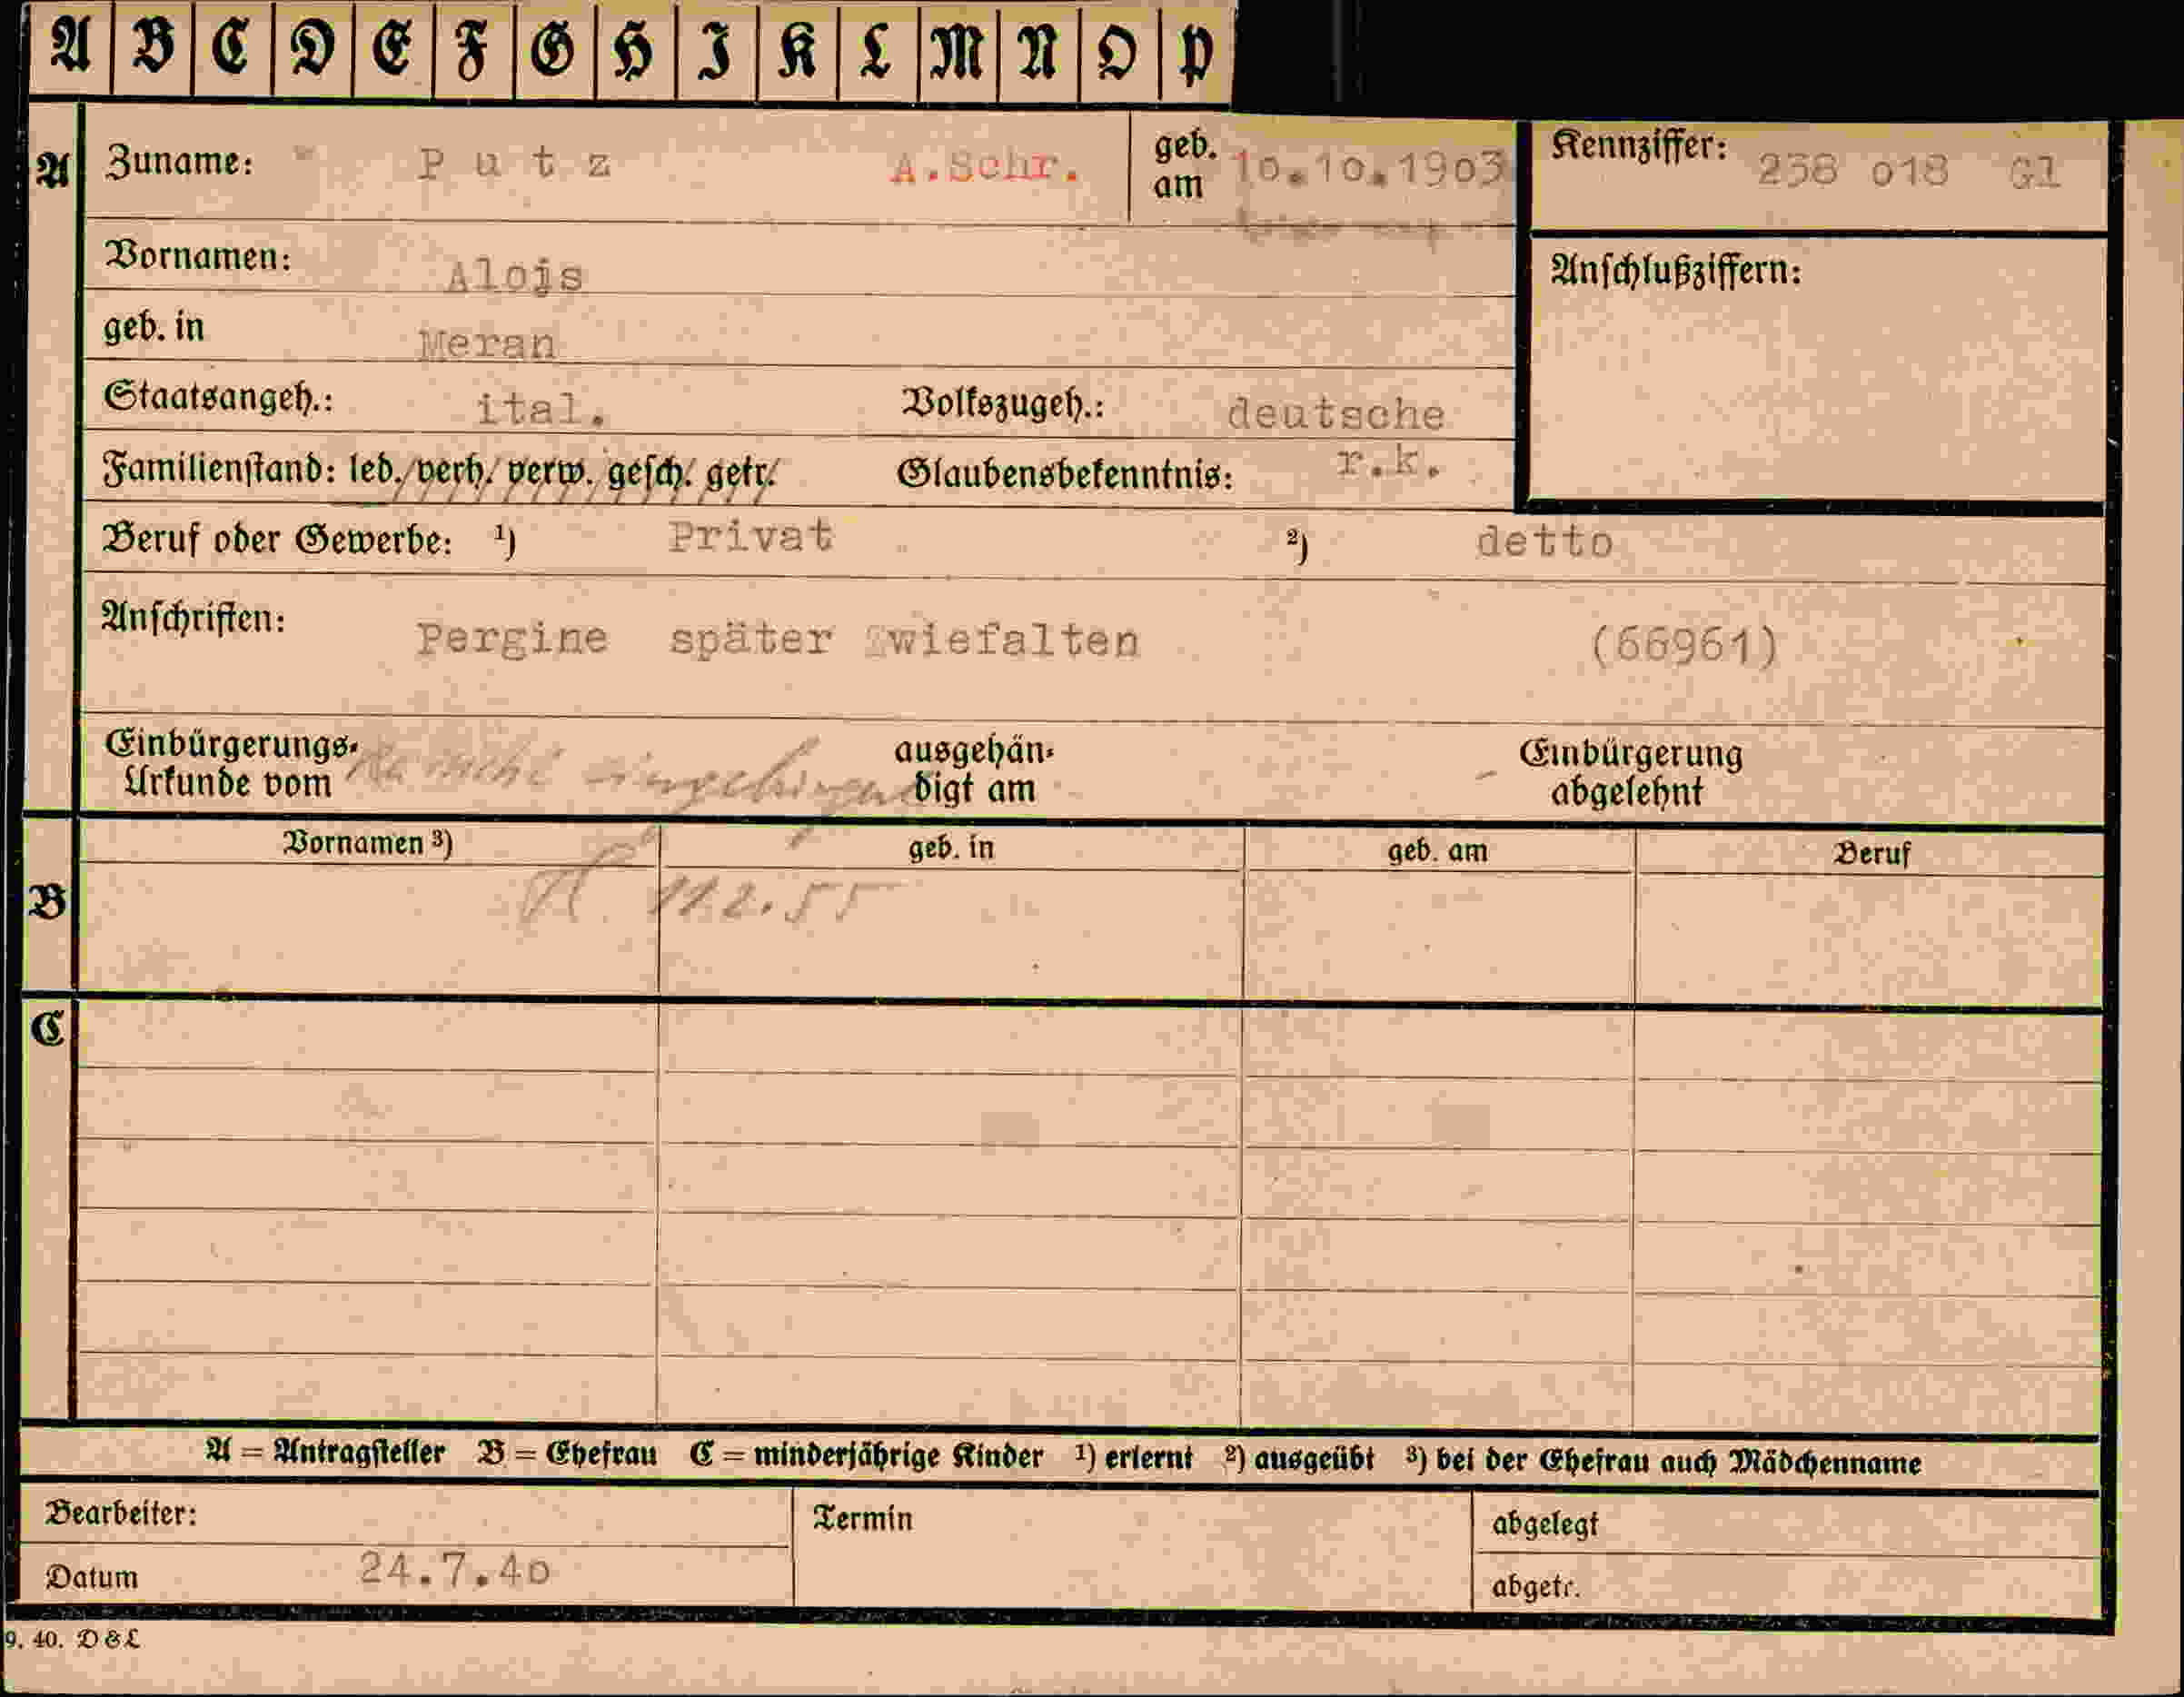 A B C D E F G H I K L M N O P
A Zuname: Putz A.Schr. geb. am 10.10.1903 Kennziffer: 238 018 Gl
Vornamen: Alois Anschlußziffern:
geb. in Meran
Staatsangeh.: ital. Volkszugeh.: deutsche
Familienstand: led./verh/verw. gesch/getr/ Glaubensbekenntnis: r.k.
Beruf oder Gewerbe: 1) Privat 2) detto
Anschriften: Pergine später Zwiefalten (66961)
Einbürgerungs-Urkunde vom ausgehändigt am Einbürgerung abgelehnt
Vornamen 3) geb. in geb. am Beruf
B 2.55
C
A = Antragsteller B = Ehefrau C = minderjährige Kinder 1) erlernt 2) ausgeübt 3) bei der Ehefrau auch Mädchenname
Bearbeiter: Termin abgelegt
Datum 24.7.40 abgetr.
9. 40. D&L